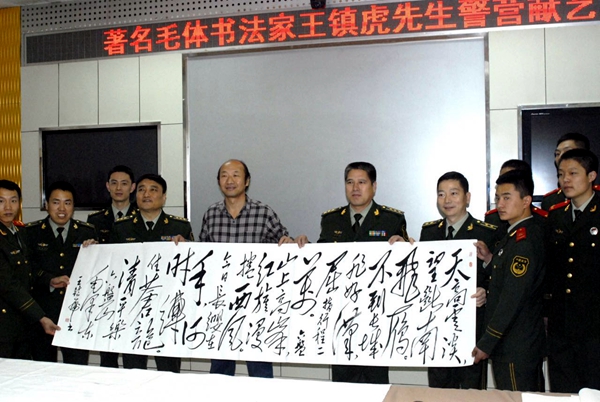 著名毛体书法家王镇虎先生警营献艺
天高雲淡，
望断南
飛雁
不到长城
非好漢，
屈指行程二
萬。六盘
山上高峯，
红旗漫
捲西风，
今日长缨在
手，何
时缚
住蒼龍
清平樂
六盘山
毛澤东